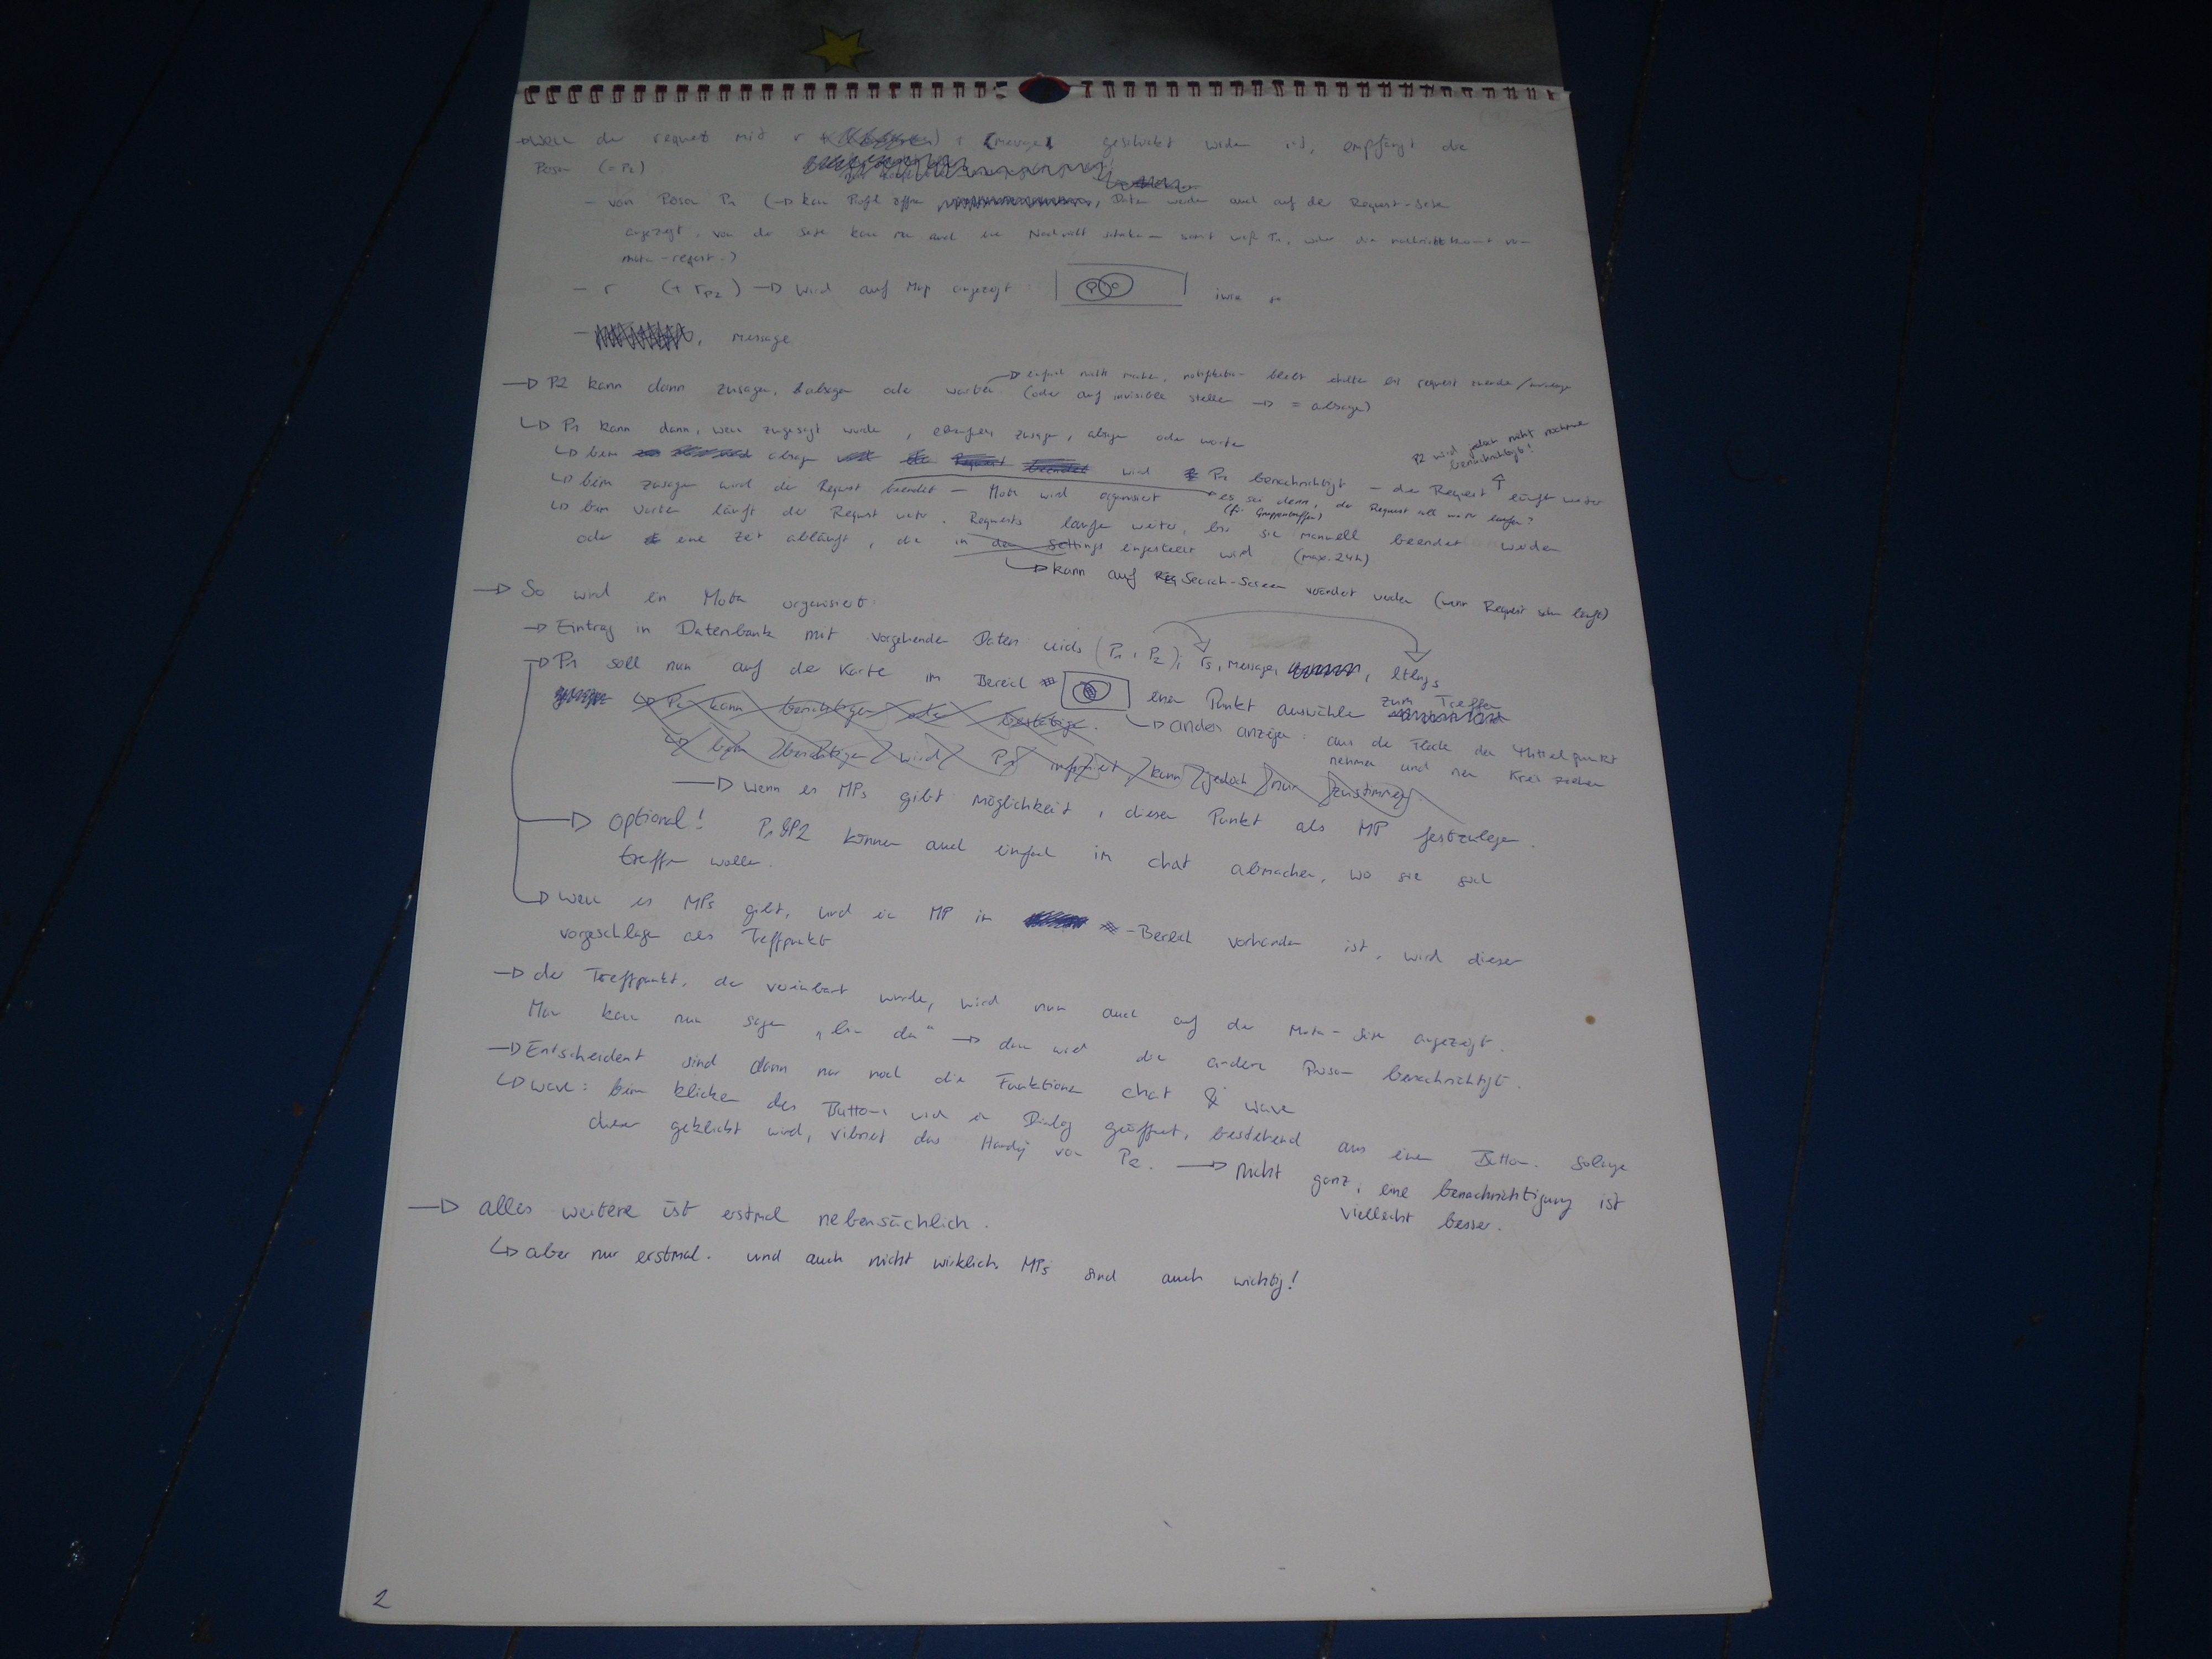 → Wenn der request mit r + (message) geschickt worden ist, empfängt die
Person (= P2)
- von Person P1 (→ kann Profil öffnen, Daten werden auch auf der Request-Seite
angezeigt, von der Seite kann man auch eine Nachricht schicken – somit weiß P1, woher die nachricht kommt von
mota-request.)
- r (+ rP2) → wird auf Map angezeigt
- message
→ P2 kann dann zusagen, absagen oder warten
→ einfach nichts machen, notification bleibt
(oder auf invisible stellen → = absage)
↳ P1 kann dann, wenn zugesagt wurde, ebenfalls zusagen, absagen oder warten
↳ beim absagen wird P1 benachrichtigt – der Request läuft weiter
P2 wird jedoch nicht nochmal
benachrichtigt!
↳ beim zusagen wird der Request beendet – Mota wird organisiert
es sei denn, der Request soll weiter laufen?
(für Gruppentreffen)
↳ beim warten läuft der Request weiter. Requests laufen weiter, bis sie manuell beendet werden
oder eine Zeit abläuft, die in den Settings eingestellt wird (max. 24h)
↳ kann auf Search-Screen verändert werden (wenn Request schon läuft)
→ So wird ein Mota organisiert:
→ Eintrag in Datenbank mit vorgehenden Daten: uids (P1, P2), rs, message, ltlngs
→ P1 soll nun auf der Karte im Bereich einen Punkt auswählen zum Treffen
↳ P2 kann berichtigen oder bestätigen.
↳ anders anzeigen: aus der Fläche den Mittelpunkt
nehmen und nen Kreis ziehen
↳ beim berichtigen wird P1 informiert, kann jedoch nur zustimmen.
→ wenn es MPs gibt: möglichkeit, diesen Punkt als MP festzulegen.
→ optional! P1 & P2 können auch einfach im chat abmachen, wo sie sich
treffen wollen.
↳ wenn es MPs gibt, und ein MP im -Bereich vorhanden ist, wird dieser
vorgeschlagen als Treffpunkt
→ der Treffpunkt, der vereinbart wurde, wird nun auch auf der Mota-Seite angezeigt.
Man kann nun sagen "bin da" → dann wird die andere Person benachrichtigt.
→ Entscheident sind dann nur noch die Funktionen chat & wave
↳ wave: beim klicken des Buttons wird ein Dialog geöffnet, bestehend aus einem Button. Solange
dieser geklickt wird, vibriert das Handy von P2. → nicht ganz, eine benachrichtigung ist
vielleicht besser.
→ alles weitere ist erstmal nebensächlich.
↳ aber nur erstmal. und auch nicht wirklich. MPs sind auch wichtig!
2